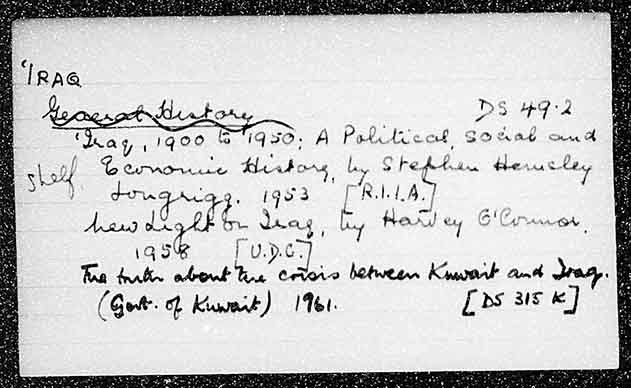 'IRAQ
General History
DS 49.2
'Iraq, 1900 to 1950; A Political, Social and
shelf. Economic History, by Stephen Hemsley
Longrigg. 1953 [R.I.I.A.]
New Light on Iraq, by Harvey O'Connor,
1958 [U.D.C.]
The truth about the crisis between Kuwait and Iraq.
(Govt. of Kuwait) 1961. [DS 315 K]